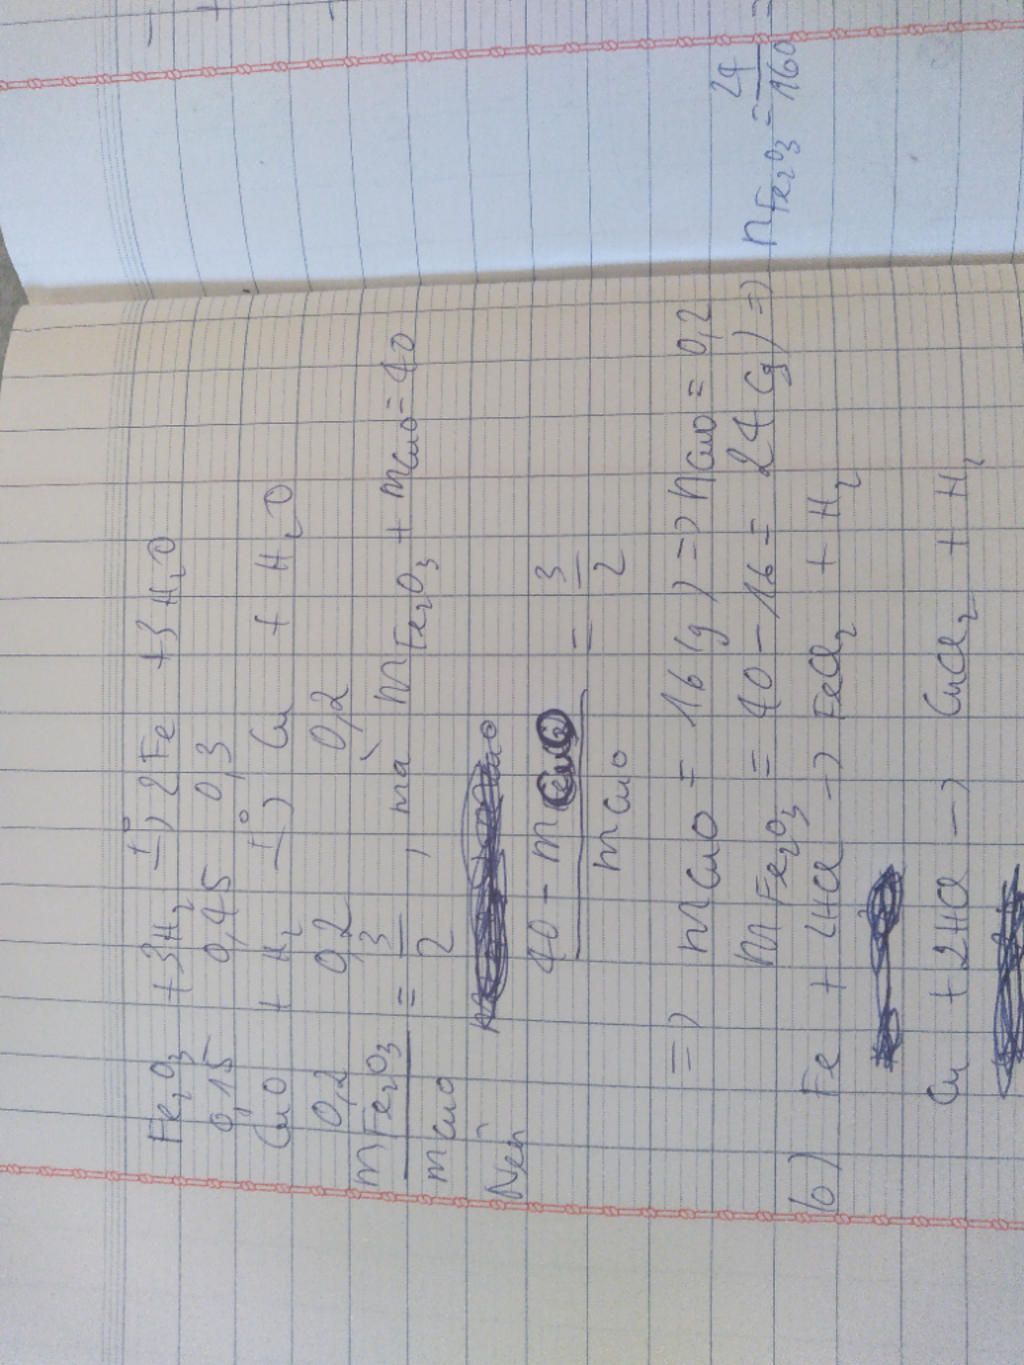 Fe₂O₃ + 3H₂ –t°→ 2Fe + 3H₂O
0,15 0,45 0,3
CuO + H₂ –t°→ Cu + H₂O
0,2 0,2 0,2
mFe₂O₃ / mCuO = 3/2 , mà mFe₂O₃ + mCuO = 40
Nên
(40 - mCuO) / mCuO = 3/2
=> mCuO = 16(g) => nCuO = 0,2
mFe₂O₃ = 40 - 16 = 24 (g) => nFe₂O₃ = 24/160 =
b) Fe + 2HCl -> FeCl₂ + H₂
Cu + 2HCl -> CuCl₂ + H₂